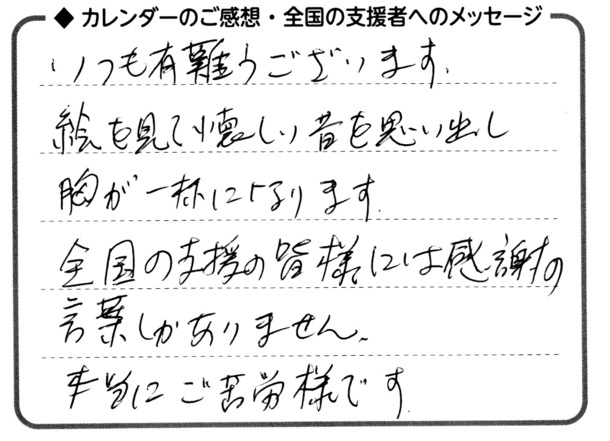 ◆ カレンダーのご感想・全国の支援者へのメッセージ
いつも有難うございます.
絵を見て懐しい昔を思い出し
胸が一杯になります.
全国の支援の皆様には感謝の
言葉しかありません、
本当にご苦労様です.